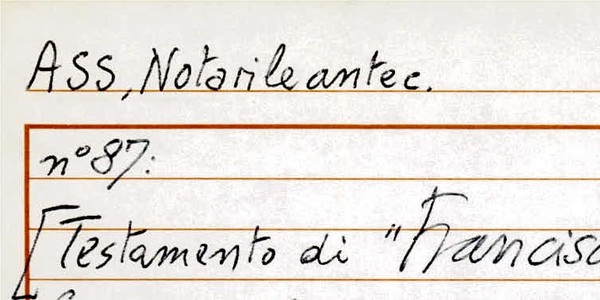 ASS, Notarile antec.
n° 87:
[Testamento di "Francisc